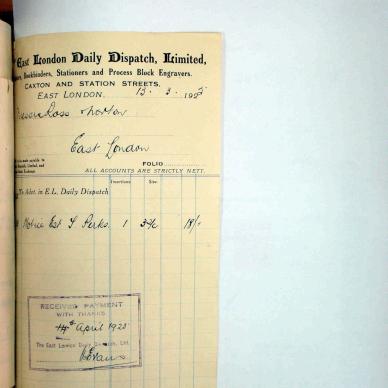 East London Daily Dispatch, Limited,
Bookbinders, Stationers and Process Block Engravers.
CAXTON AND STATION STREETS.
EAST LONDON. 13. 3. 1923
Ross & Norton
East London
made payable to
Dispatch, Limited, and
FOLIO
ALL ACCOUNTS ARE STRICTLY NETT.
Insertions Size
To Advt. in E.L. Daily Dispatch
Notice Est J. Perks. 1 18/-
RECEIVED PAYMENT
WITH THANKS
April 1923
The East London Daily Dispatch, Ltd.